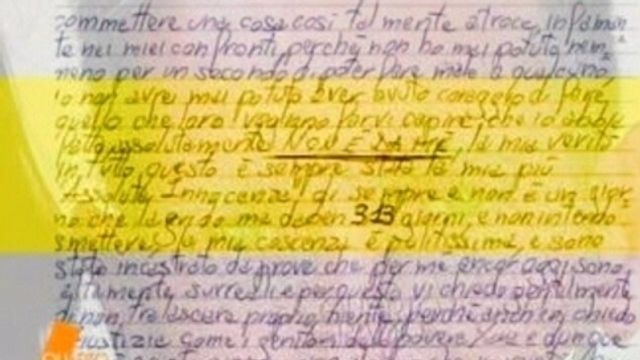 commettere una cosa così talmente atroce, infaman
te nei miei confronti, perché non ho mai potuto nem=
meno per un secondo di poter fare male a qualcuno,
io non avrei mai potuto aver avuto coraggio di fare
quello che loro vogliono farvi capire, che io abbia
fatto, assolutamente NON È DA ME, la mia verità
in tutto questo è sempre stata la mia più
Assoluta Innocenza, di sempre e non è un gior=
no che la grido ma da ben 313 giorni, e non intendo
smettere, la mia coscenza è pulitissima, e sono
stato incastrato da prove che per me ancor oggi sono
altamente surreali e per questo vi chiedo gentilmente
di non tralasciare proprio niente, perché anch'io chiedo
giustizia come i genitori della povera Yara e dunque